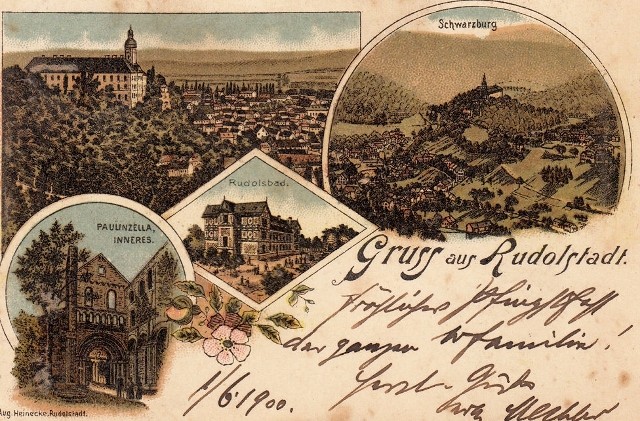 Schwarzburg
Rudolsbad.
PAULINZELLA,
INNERES.
Gruss aus Rudolstadt.
Fröhliches Pfingstfest
der ganzen Familie!
1/6. 1900.
Aug. Heinecke, Rudolstadt.